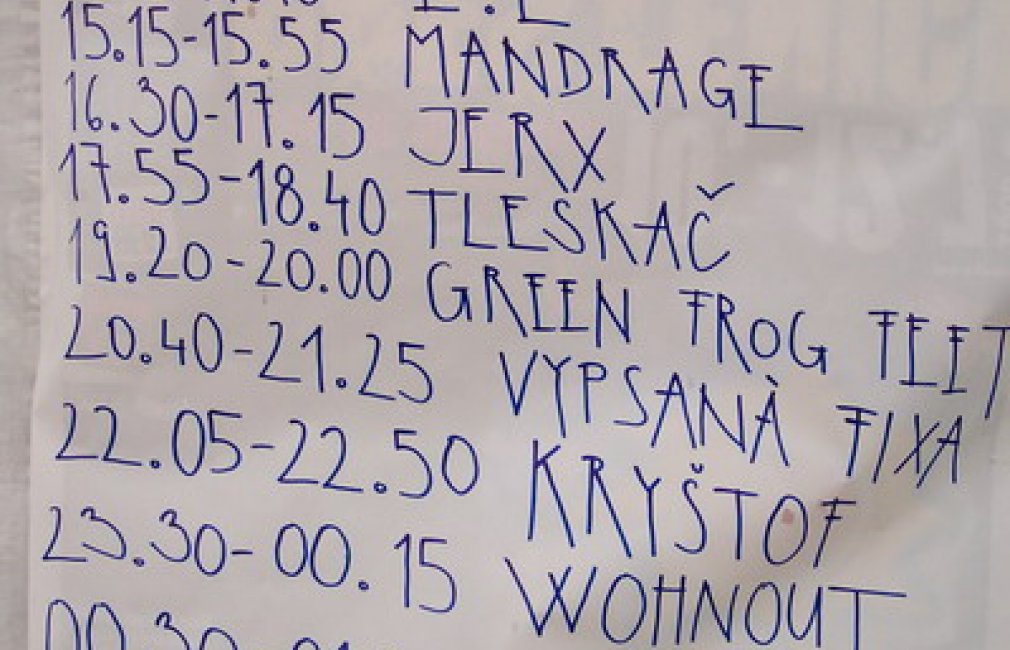 15.15-15.55 MANDRAGE
16.30-17.15 JERX
17.55-18.40 TLESKAČ
19.20-20.00 GREEN FROG FEET
20.40-21.25 VYPSANÀ FIXA
22.05-22.50 KRYŠTOF
23.30-00.15 WOHNOUT
00.30